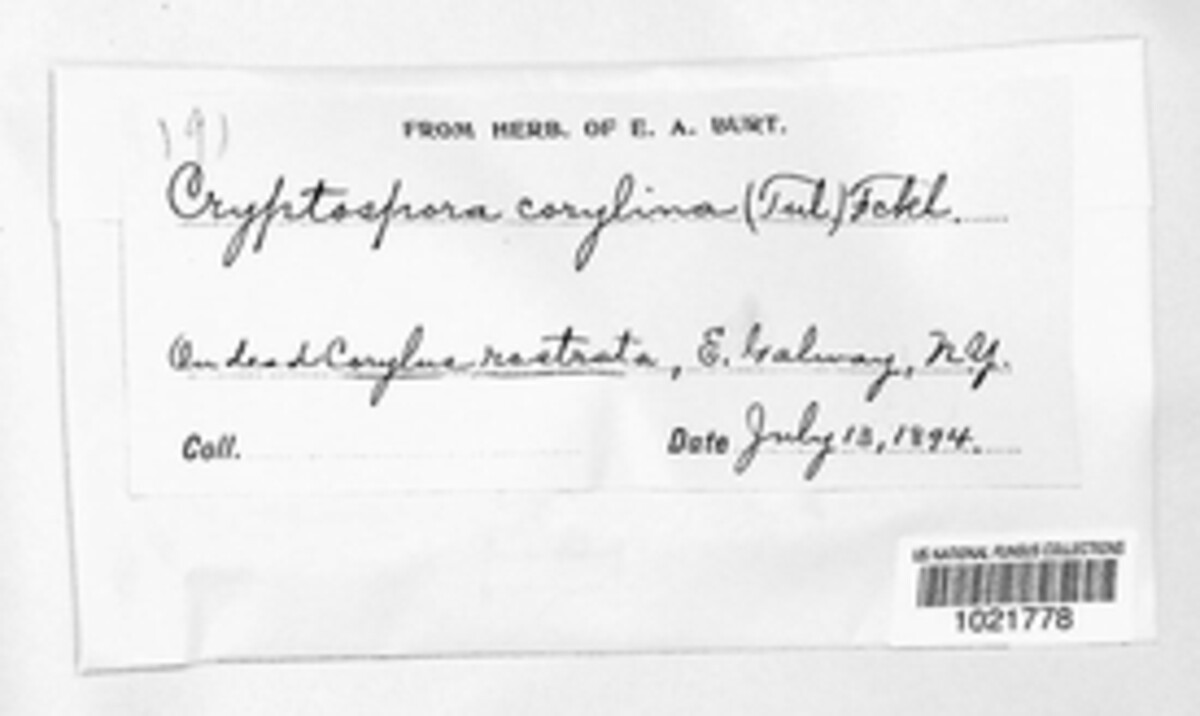 FROM HERB. OF E. A. BURT.
Cryptospora corylina (Tul.) Fckl.
On dead Corylus rostrata, E. Galway, N.Y.
Coll.
Date July 13, 1894.
US NATIONAL FUNGUS COLLECTIONS
1021778